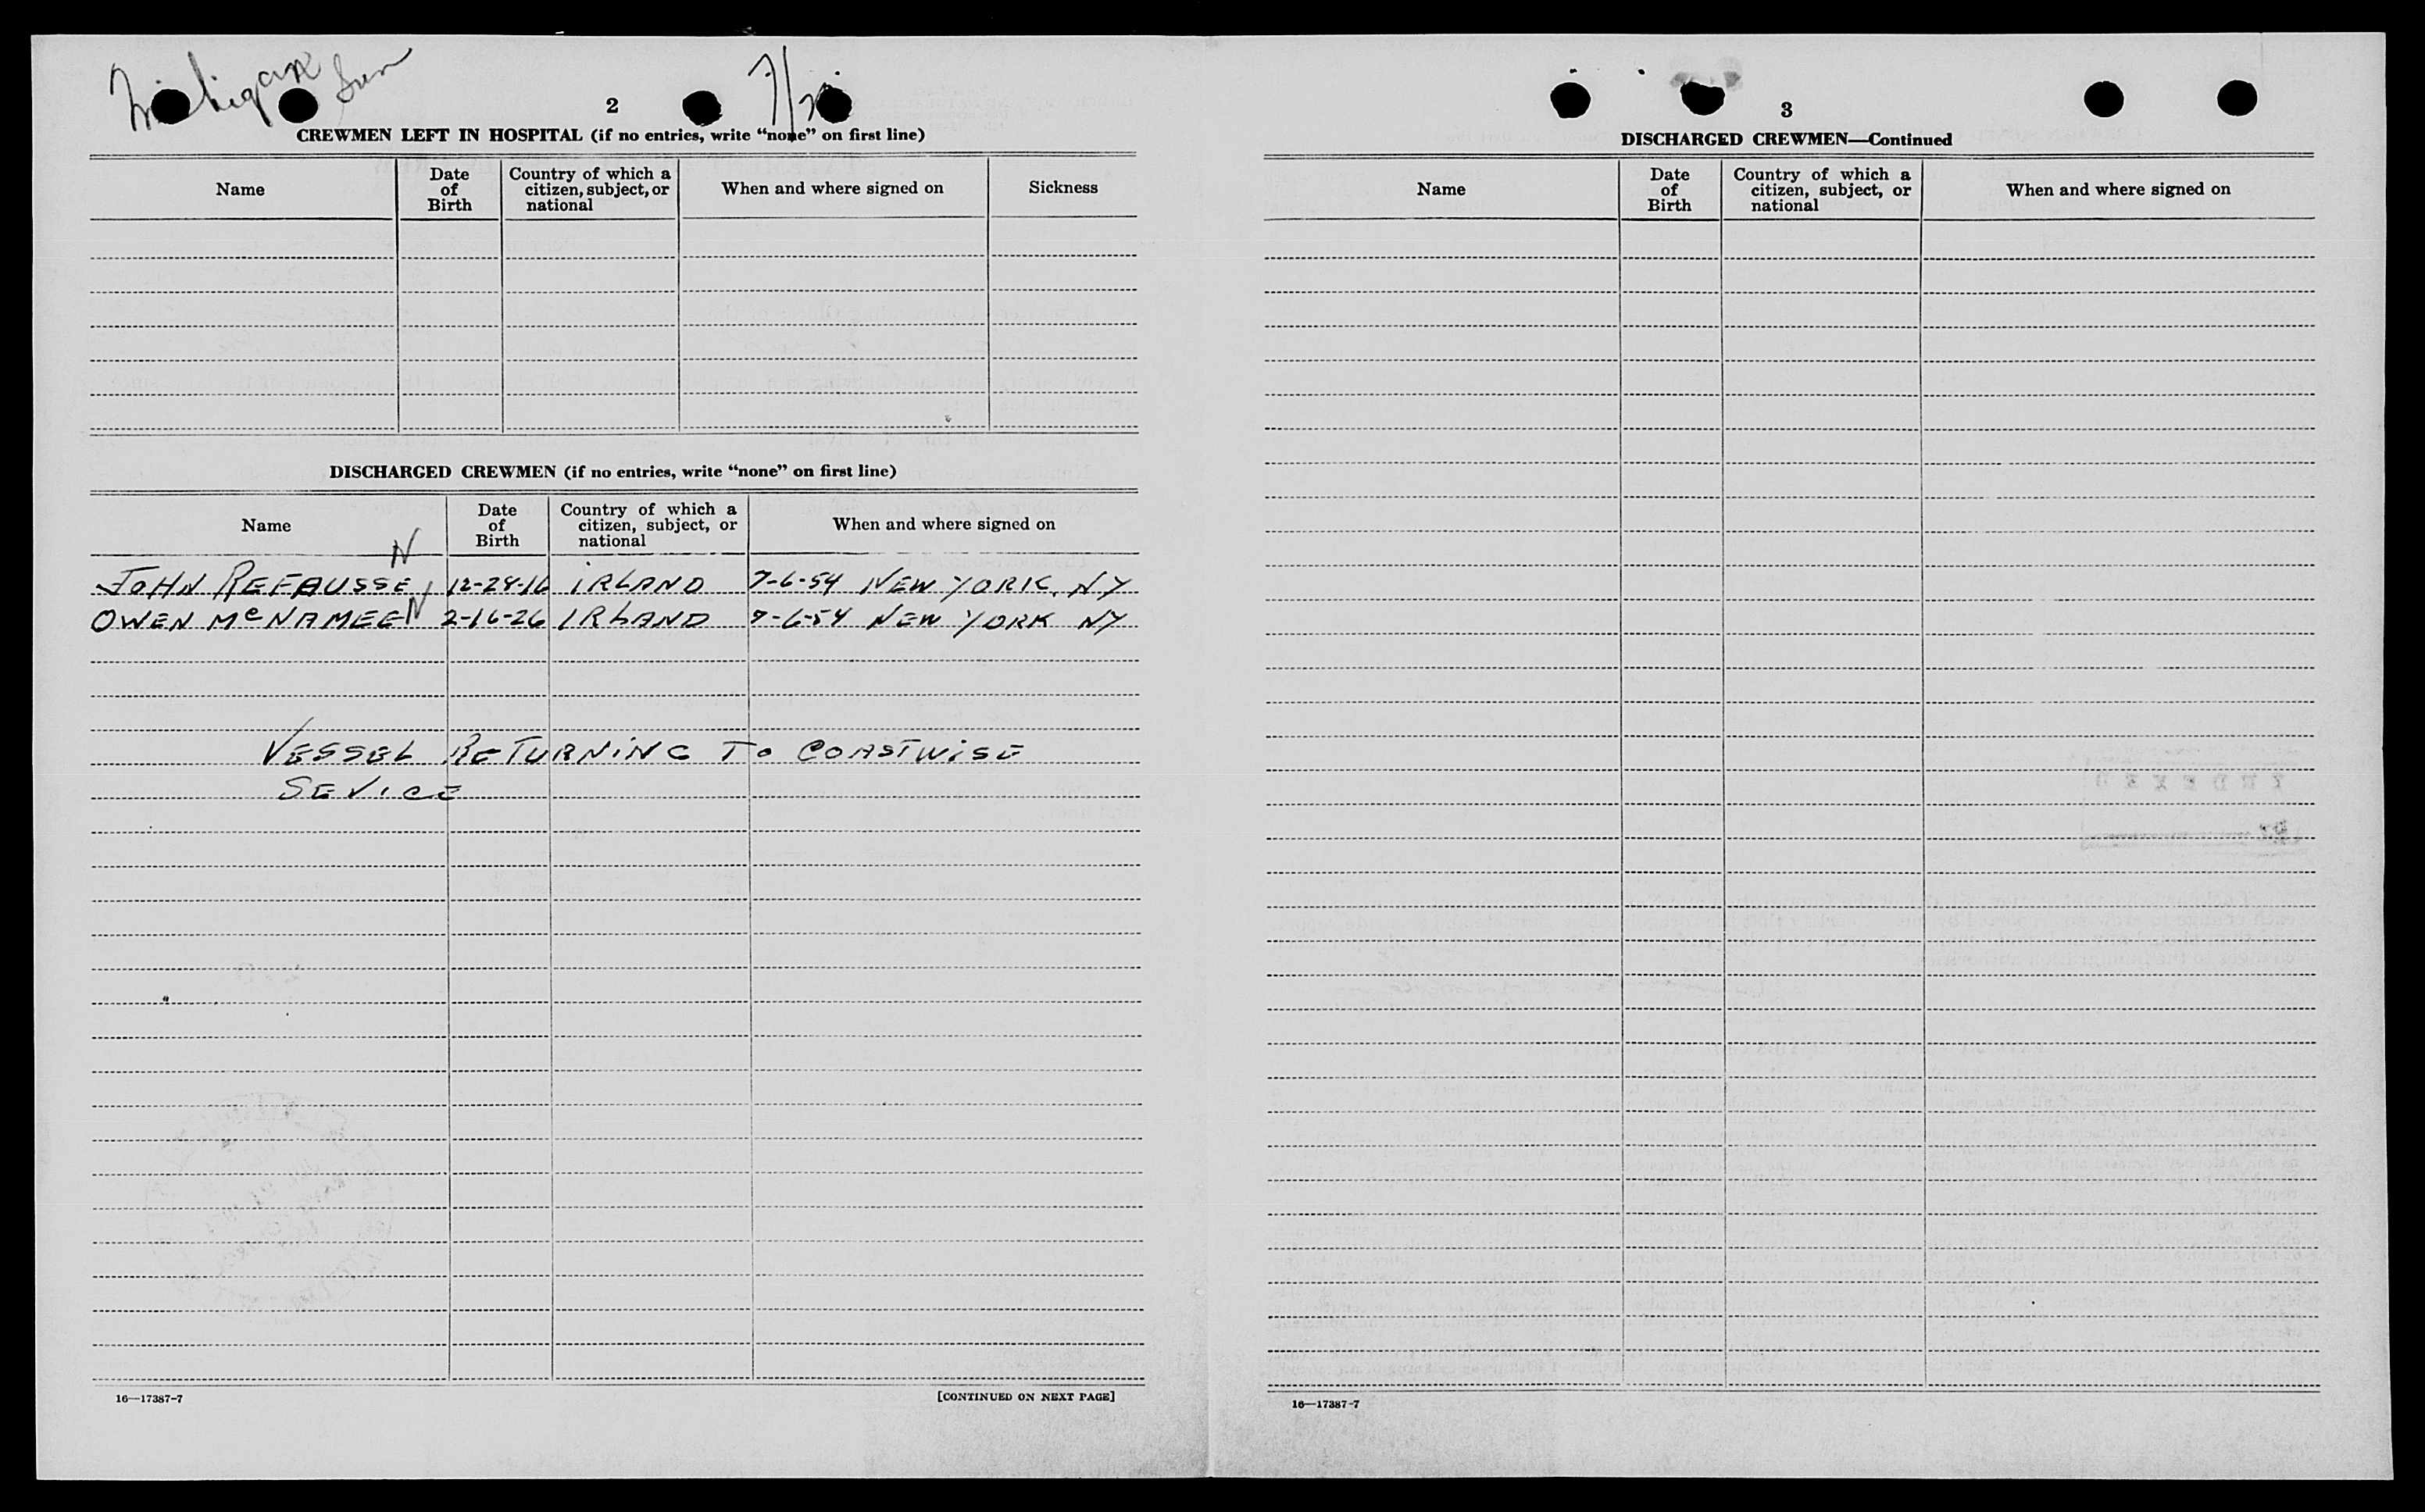 Michigan Sun
7/20
2
CREWMEN LEFT IN HOSPITAL (if no entries, write “none” on first line)
Name
Date of Birth
Country of which a citizen, subject, or national
When and where signed on
Sickness
DISCHARGED CREWMEN (if no entries, write “none” on first line)
Name
Date of Birth
Country of which a citizen, subject, or national
When and where signed on
N
JOHN REFAUSSE 12-28-16 IRLAND 7-6-54 NEW YORK, NY
OWEN McNAMEE N 2-16-26 IRLAND 7-6-54 NEW YORK NY
VESSEL RETURNING TO COASTWISE
SEVICE
16—17387-7
[CONTINUED ON NEXT PAGE]
3
DISCHARGED CREWMEN—Continued
Name
Date of Birth
Country of which a citizen, subject, or national
When and where signed on
16—17387-7